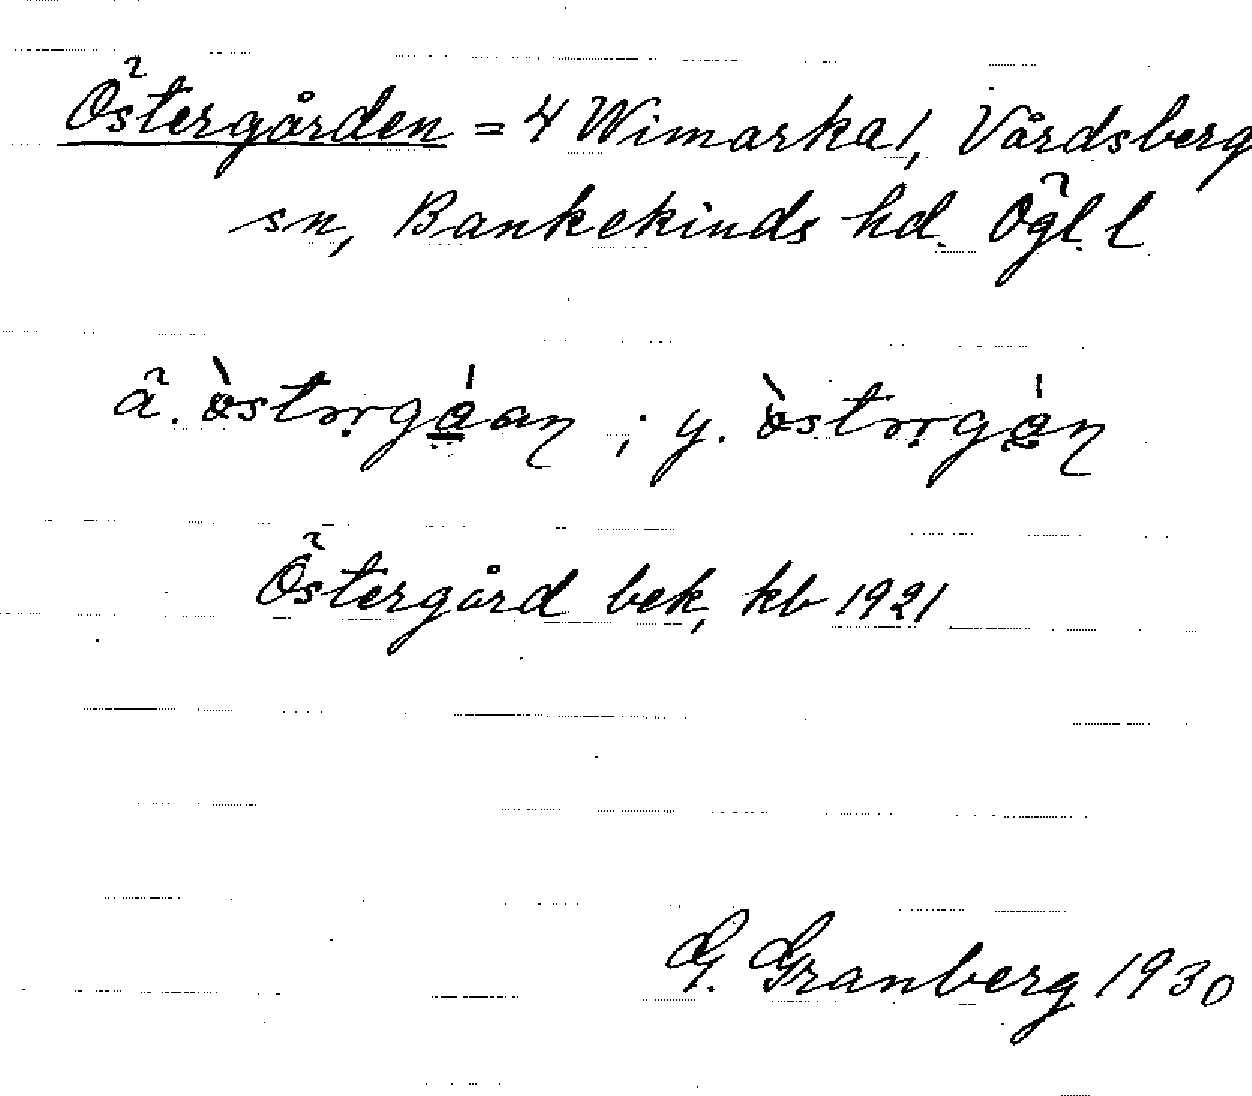 Östergården = 4 Wimarka 1, Vårdsberg
sn, Bankekinds hd. Ögl. l
ä. ; y.
Östergård bek, kb 1921
G. Granberg 1930